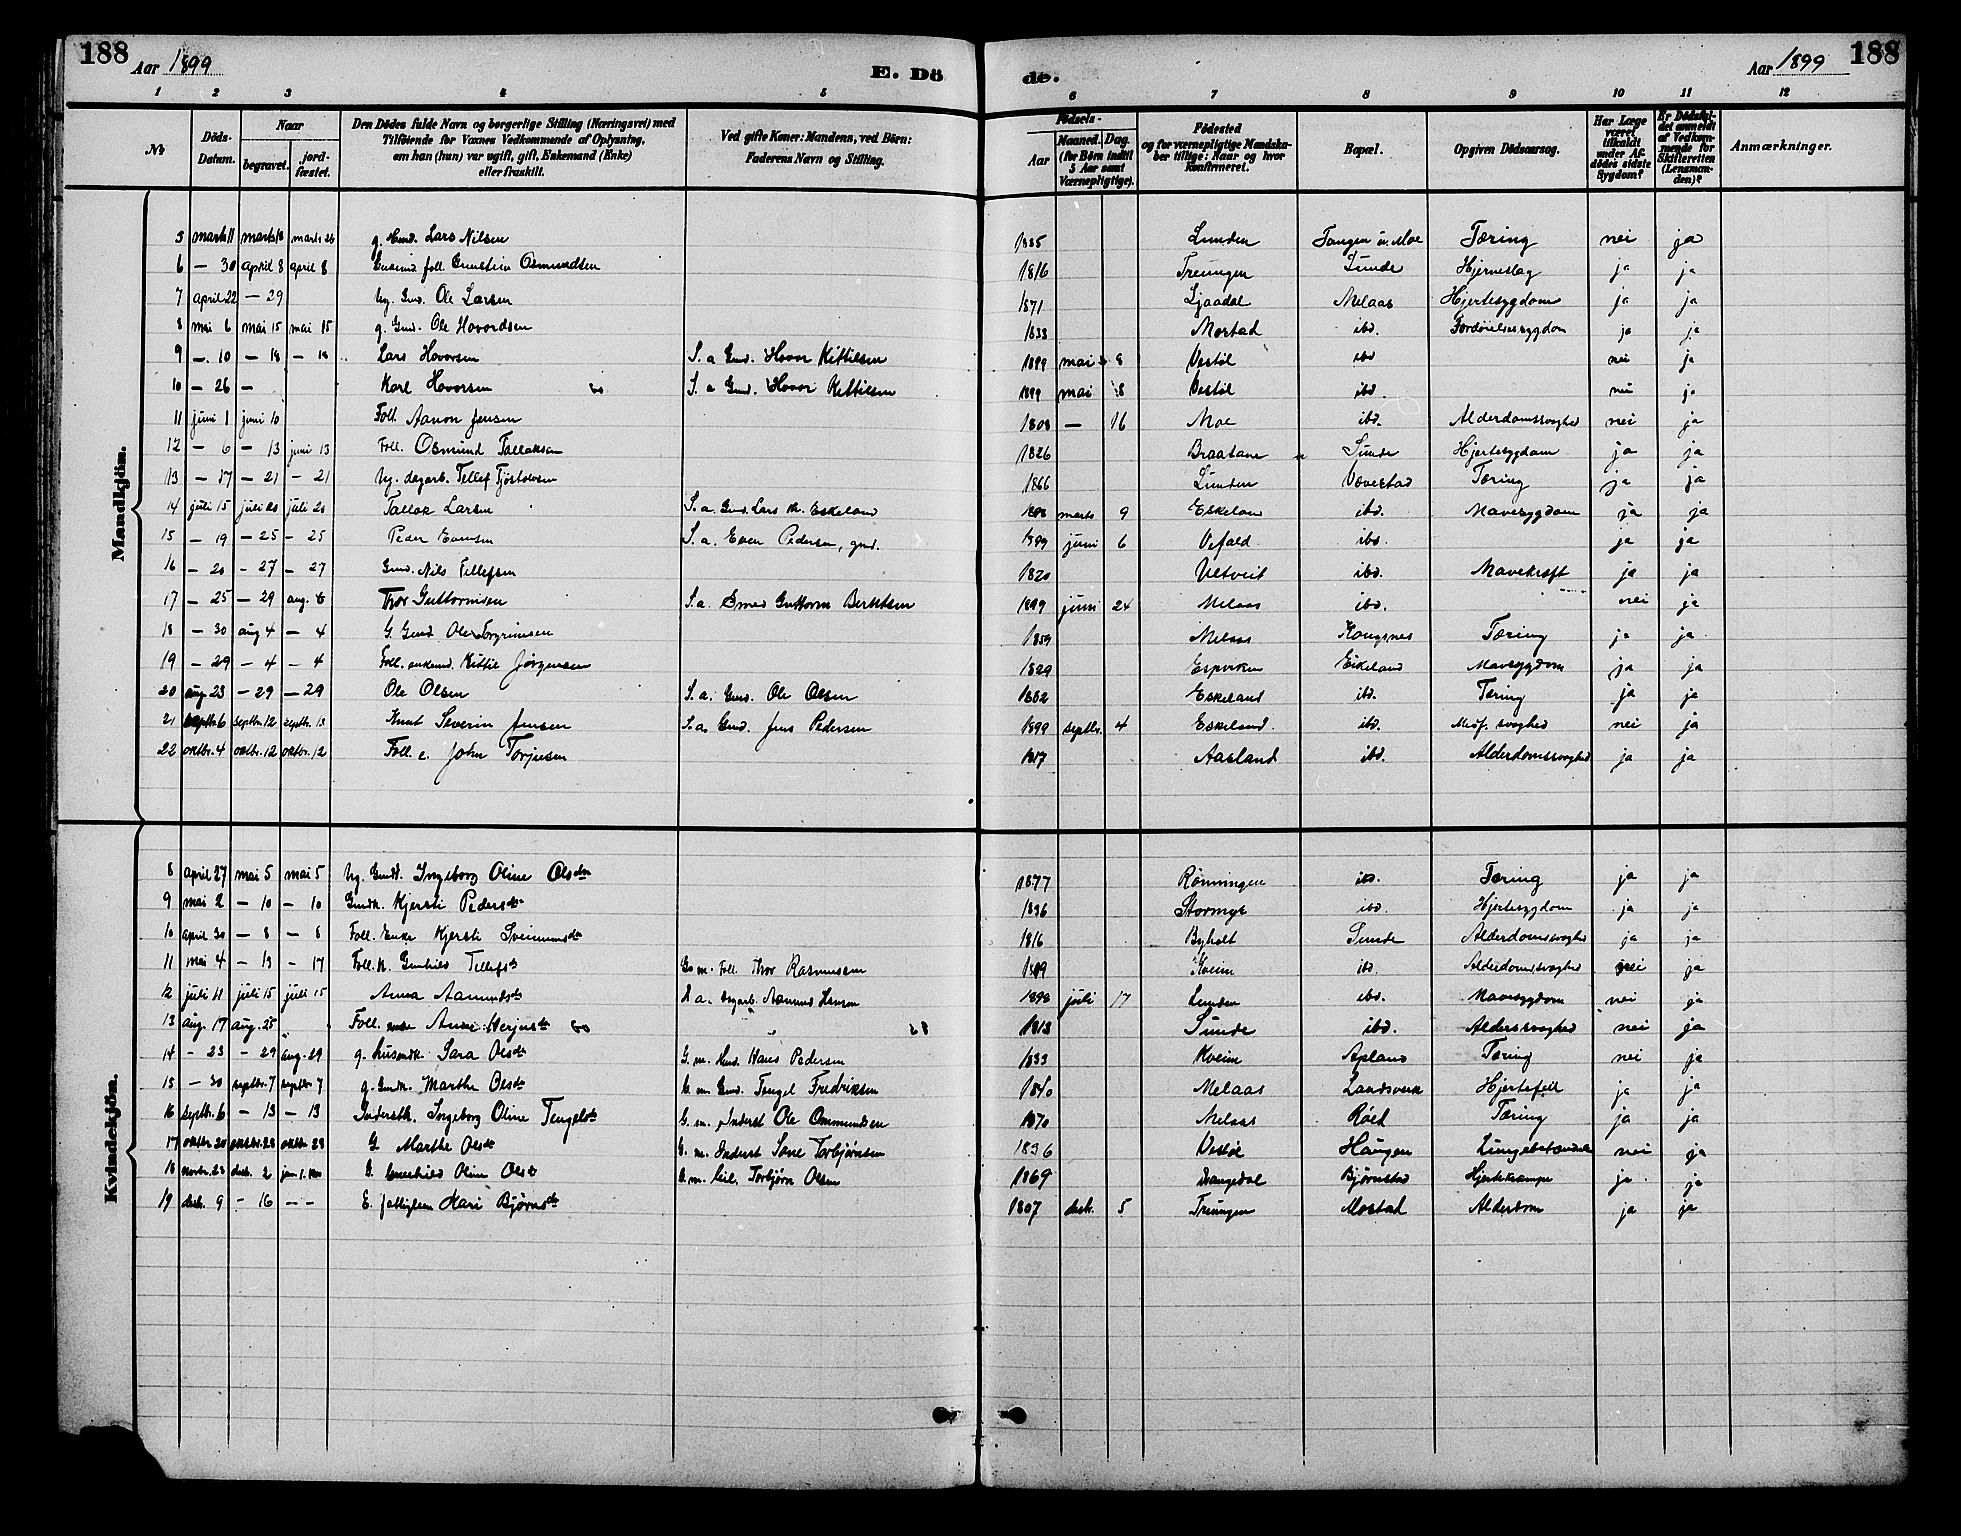 188 Aar 1899 E. Dö de. Aar 1899 188
1 2 3 4 5 6 7 8 9 10 11 12
№ Döds-Datum. Naar begravet. jord-fæstet. Den Dödes fulde Navn og borgerlige Stilling (Næringsvei) med Tilföiende for Voxnes Vedkommende af Oplysning, om han (hun) var ugift, gift, Enkemand (Enke) eller fraskilt. Ved gifte Koner: Mandens, ved Börn: Faderens Navn og Stilling. Födsels- Aar Maaned. Dag. (for Börn indtil 5 Aar samt Værnepligtige). Födested og for værnepligtige Mandskaber tillige: Naar og hvor Konfirmeret. Bopæl. Opgiven Dödsaarsag. Har Læge været tilkaldt under Afdödes sidste Sygdom? Er Dödsfaldet anmeldt af Vedkommende for Skifteretten (Lensmanden)? Anmærkninger.
Mandkjön.
5 marts 11 marts 18 marts 26 g. Lars Nilsen 1835 Lunden Tangen u. Moe Tæring nei ja
6 — 30 april 8 april 8 foll. Osmundsen 1816 Treungen Sunde Hjerneslag ja ja
7 april 22 — 29 Ug. Gmd. Ole Larsen 1871 Ljaadal Melaas Hjertesygdom ja ja
8 mai 6 mai 15 mai 15 g. Gmd. Ole Hovordsen 1838 Mostad ibd. Fordøielsessygdom ja ja
9 — 10 — 18 — 18 Lars Hovorsen S. a Gmd. Hovor Kittilsen 1899 mai 8 Vestøl ibd nei ja
10 — 26 — Karl Hovorsen S. a Gmd. Hovor Kittilsen 1899 mai 8 Vestøl ibd. nei ja
11 juni 1 juni 10 Foll. Aanon Jensen 1808 — 16 Moe ibd. Alderdomssvaghed nei ja
12 — 6 — 13 juni 13 Foll. Osmund Tallaksen 1826 Braatane Sunde Hjertesygdom ja ja
13 — 17 — 21 — 21 Ug. dagarb. Tellef Tjøstolvsen 1866 Lunden Vævestad Tæring ja ja
14 juli 15 juli 20 juli 20 Tallak Larsen S. a. Gmd. Lars Eskeland 1898 marts 9 Eskeland ibd. Mavesygdom ja ja
15 — 19 — 25 — 25 Peder Evensen S. a. Even Pedersen, gmd. 1899 juni 6 Vefald ibd. ja ja
16 — 20 — 27 — 27 Gmd. Nils Tellefsen 1820 Ultveit ibd. Mavekræft ja ja
17 — 25 — 29 aug. 6 Thor Guttormsen S. a. Guttorm Berntsen 1899 juni 24 Melaas ibd. nei ja
18 — 30 aug 4 — 4 G. Gmd Ole Torgrimsen 1859 Melaas Kongsnes Tæring ja ja
19 — 29 — 4 — 4 Foll. enkemd. Kittil Jørgensen 1829 Espviken Eskeland Mavesygdom ja ja
20 aug. 23 — 29 — 29 Ole Olsen S. a. Gmd. Ole Olsen 1882 Eskeland ibd. Tæring ja ja
21 septbr. 6 septbr. 12 septbr. 13 Knut Severin Jensen S. a. Gmd. Jens Pedersen 1899 septbr. 4 Eskeland. ibd. Medf. svaghed nei ja
22 oktbr. 4 oktbr. 12 oktbr. 12 Foll. e. John Torjusen 1817 Aasland ibd. Alderdomssvaghed ja ja
Kvindekjön.
8 april 27 mai 5 mai 5 Ug. Ingeborg Oline Olsdtr 1877 Rønningen ibd. Tæring ja ja
9 mai 2 — 10 — 10 Gmdk. Kjersti Pedersdtr 1836 Stormyr ibd. Hjertesygdom ja ja
10 april 30 — 8 — 8 Foll. Enke Kjersti 1816 Byholt Sunde Alderdomssvaghed ja ja
11 mai 4 — 13 — 17 Foll. k. Gunhild Tellefsdtr G. m. Foll. Thor Rasmussen 1819 Kveim ibd. Alderdomssvaghed nei ja
12 juli 11 juli 15 juli 15 Anna Aamundsdtr D a. dagarb. Aamund Hansen 1898 juli 17 Lunden ibd. Mavesygdom nei ja
13 aug. 17 aug. 25 " Foll. enke Anne Herjusdtr " 1813 Sunde ibd. Alderssvaghed nei ja
14 - 23 - 29 aug. 29 g. husmdk. Sara Olsdtr G. m. Hmd. Hans Pedersen 1833 Kveim Apland Tæring nei ja
15 — 30 septbr. 7 septbr. 7 g. Gmdk. Marthe Olsdtr G. m. Gmd. Tengel Fredriksen 1840 Melaas Landsverk Hjertefeil ja ja
16 septbr. 6 — 13 — 13 Inderstk. Ingeborg Oline Tengelsdtr G. m. Inderst Ole Ommundsen 1870 Melaas Røed Tæring ja ja
17 oktbr. 20 oktbr. 28 oktbr 28 G Marthe Olsdtr G. m. Inderst Torbjørnsen 1836 Vestøl Haugen Lungebetændelse nei ja
18 novbr. 23 desb. 2 G. Gunhild Oline Olsdtr G. m. Torbjørn Olsen 1869 Drangedal Bjørnstad Hjertekrampe ja ja
19 desb. 9 - 16 - - E. Kari Bjørnsdtr 1807 desb. 5 Treungen Mostad Alderdom ja ja